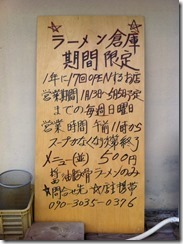 ラーメン倉庫
期間限定
1年に17回OPENするお店
営業期間 1月13(日)〜5月5(日)予定
までの毎週日曜日
営業時間 午前11時05
スープがなくなり次第終了
メニュー(並) 500円
醤油豚骨ラーメンのみ
お問合せ先 携帯
090-3035-0376